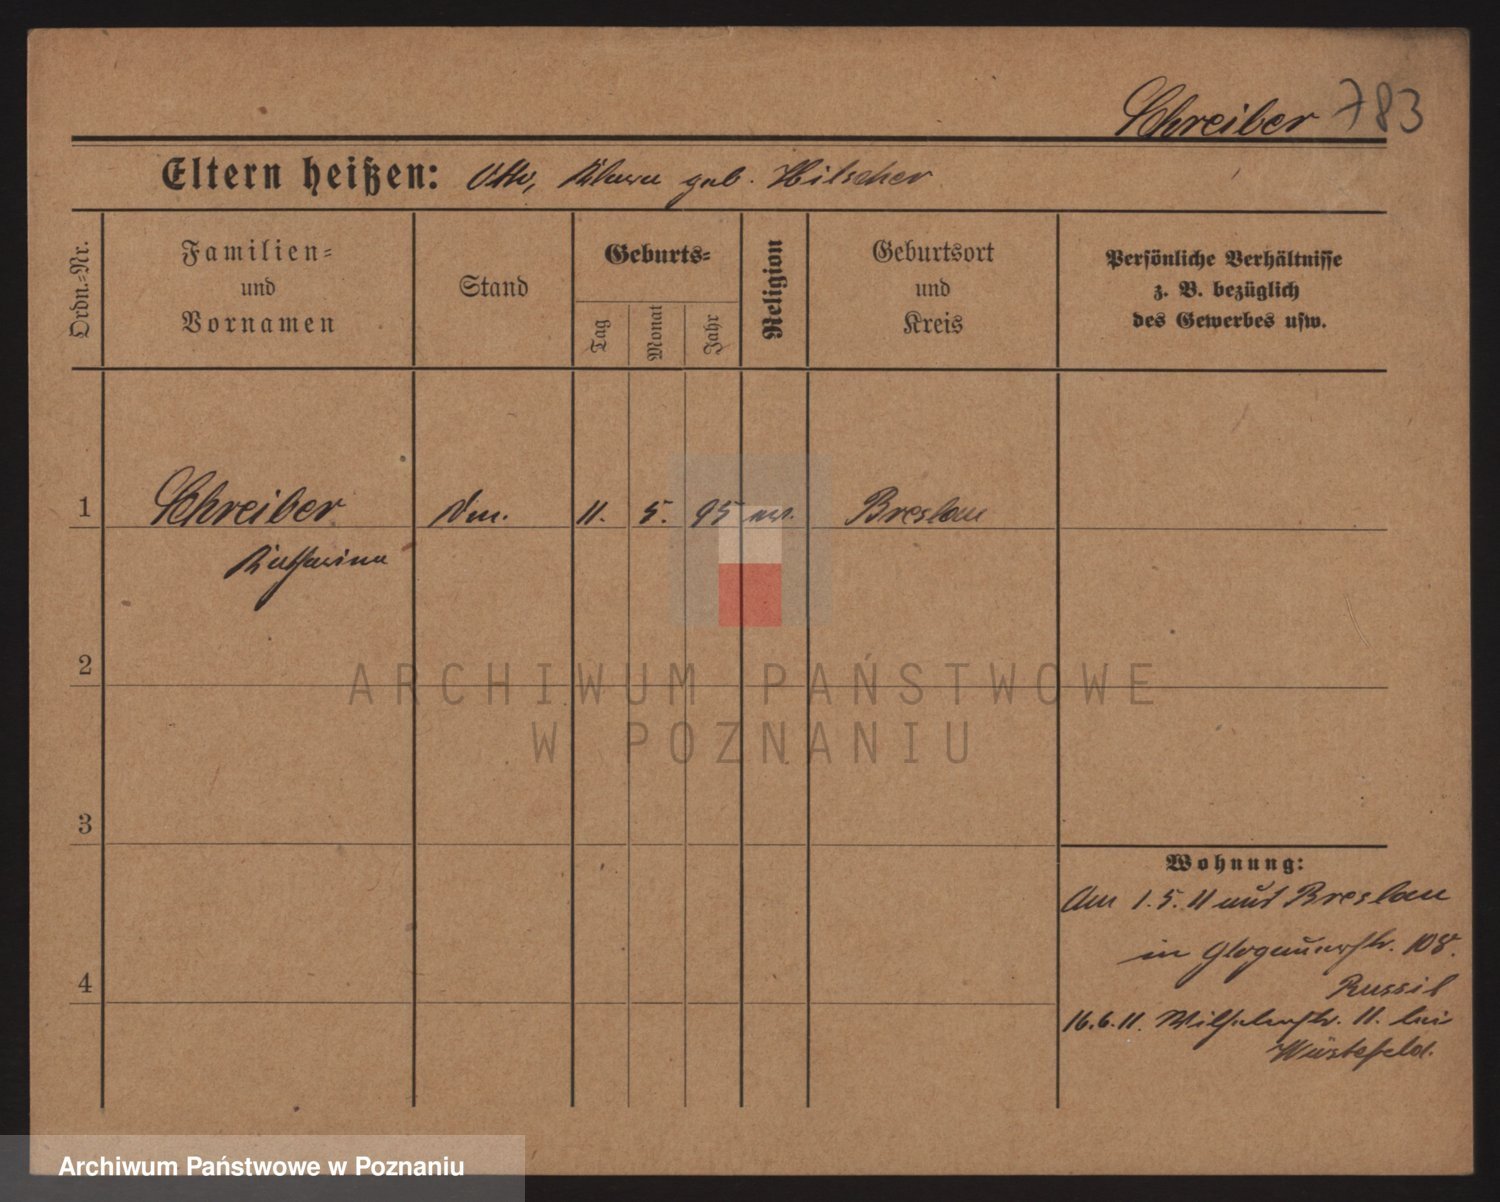 Schreiber 783
Eltern heißen: Otto, Klara geb. Hilscher
Ordn.-Nr.
Familien-
und
Vornamen
Stand
Geburts-
Tag
Monat
Jahr
Religion
Geburtsort
und
Kreis
Persönliche Verhältnisse
z. B. bezüglich
des Gewerbes usw.
1 Schreiber 11. 5. 95 Breslau
Katharina
2
3
4
Wohnung:
Am 1.5.11 aus Breslau
in Glogauerstr. 108.
16.6.11. Wilhelmstr. 11. bei
Wüstefeld.
ARCHIWUM PAŃSTWOWE
W POZNANIU
Archiwum Państwowe w Poznaniu